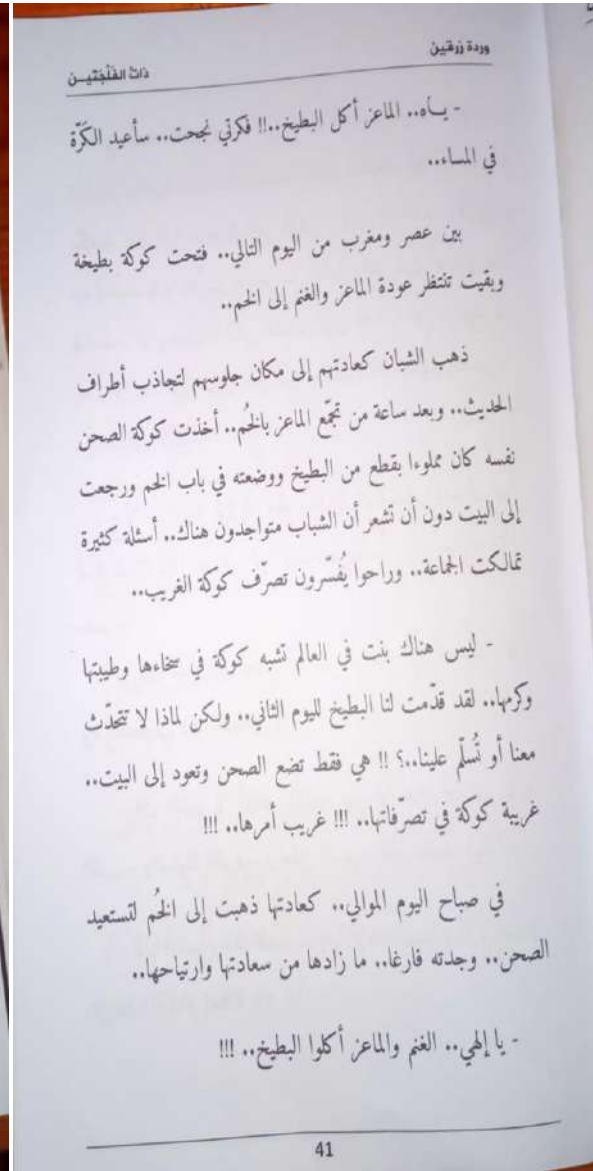 وردة زرقين
ذات الفَلْجَتَيــن
- يــاه.. الماعز أكل البطيخ..!! فكرتي نجحت.. سأعيد الكَرّة
في المساء..
بين عصر ومغرب من اليوم التالي.. فتحت كوكة بطيخة
وبقيت تنتظر عودة الماعز والغنم إلى الخم..
ذهب الشبان كعادتهم إلى مكان جلوسهم لتجاذب أطراف
الحديث.. وبعد ساعة من تجمّع الماعز بالخُم.. أخذت كوكة الصحن
نفسه كان مملوءا بقطع من البطيخ ووضعته في باب الخم ورجعت
إلى البيت دون أن تشعر أن الشباب متواجدون هناك.. أسئلة كثيرة
تمالكت الجماعة.. وراحوا يُفسّرون تصرّف كوكة الغريب..
- ليس هناك بنت في العالم تشبه كوكة في سخاءها وطيبتها
وكرمها.. لقد قدّمت لنا البطيخ لليوم الثاني.. ولكن لماذا لا تتحدّث
معنا أو تُسلّم علينا..؟ !! هي فقط تضع الصحن وتعود إلى البيت..
غريبة كوكة في تصرّفاتها.. !!! غريب أمرها.. !!!
في صباح اليوم الموالي.. كعادتها ذهبت إلى الخُم لتستعيد
الصحن.. وجدته فارغا.. ما زادها من سعادتها وارتياحها..
- يا إلهي.. الغنم والماعز أكلوا البطيخ.. !!!
41